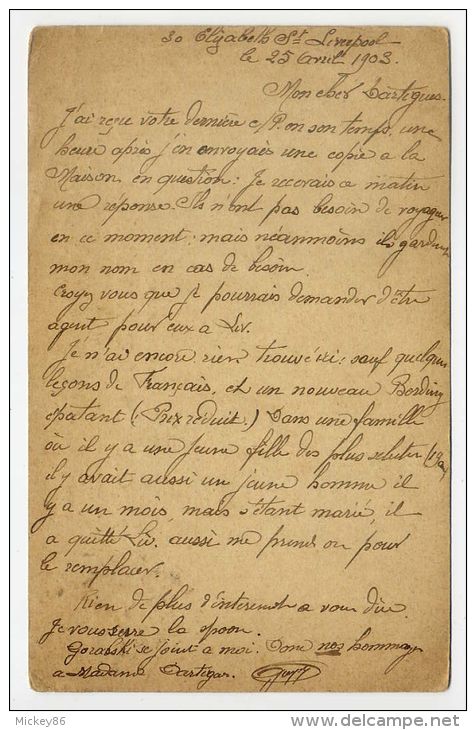 30 Elizabeth St Liverpool
le 25 Avril 1903.
Mon cher Dartigues.
J'ai reçu votre dernière c/P. en son temps, une
heure après j'en envoyais une copie a la
Maison en question: Je recevais ce matin
une réponse. Ils n'ont pas besoin de voyageur
en ce moment; mais néanmoins ils gardent
mon nom en cas de besoin.
Croyez vous que je pourrais demander d'être
agent pour eux a Liv.
Je n'ai encore rien trouvé ici; sauf quelques
leçons de Français, et un nouveau Bording
epatant (Prix réduit.) Dans une famille
où il y a une jeune fille des plus
il y avait aussi un jeune homme il
y a un mois, mais s'étant marié, il
a quitté Liv. aussi me prend on pour
le remplacer.
Rien de plus d'interessant a vous dire
Je vous serre la
se joint a moi. Dans nos hommages
a Madame Dartigues.
Mickey86
www.delcampe.net